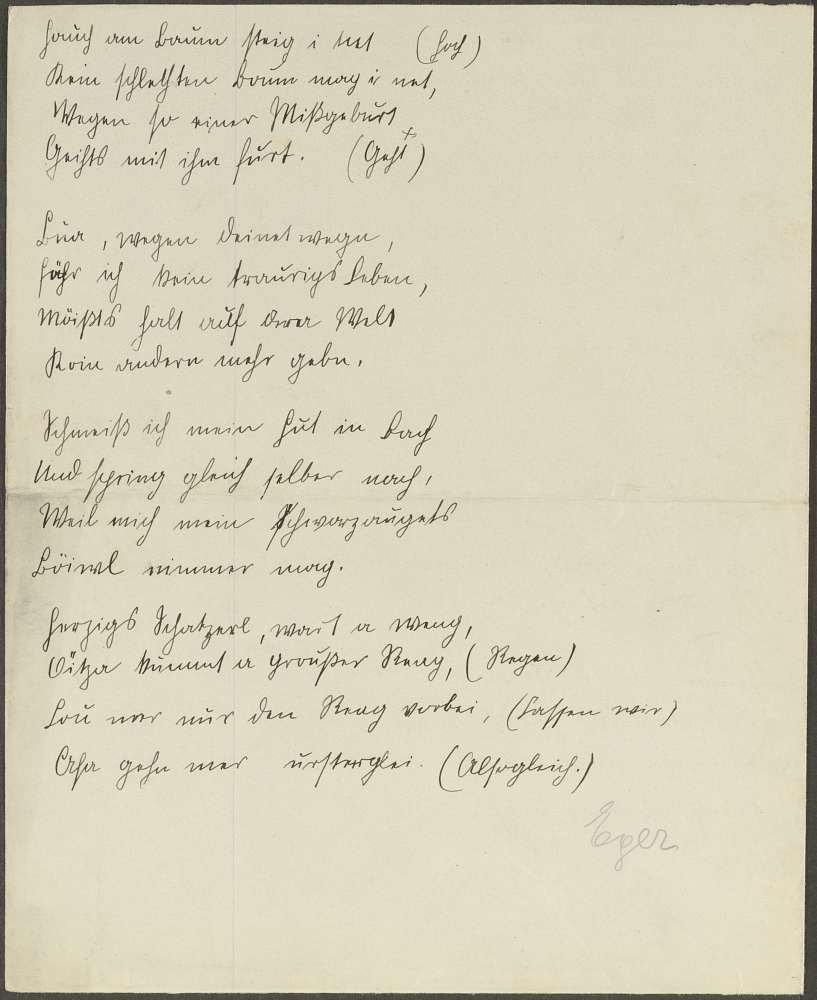 Hauch am Baum steig i net (hoch)
Kein schlechten Baum mag i net,
Wegen so einer Mißgeburt
Geihts mit ihm furt. (Geht)
Bua, wegen deinetwegn,
führ ich kein traurigs Leben,
Möißts halt auf derer Welt
Koin andern mehr gebn.
Schmeiß ich mein Hut in Bach
Und spring gleich selber nach,
Weil mich mein Schwarzaugets
Böiwl nimmer mag.
Herzigs Schatzerl, wart a weng,
Öitza kummt a groußer Reng, (Regen)
Lou mer nur den Reng vorbei, (Lassen wir)
Aha gehn mer ursterglei. (Alsogleich.)
Eger